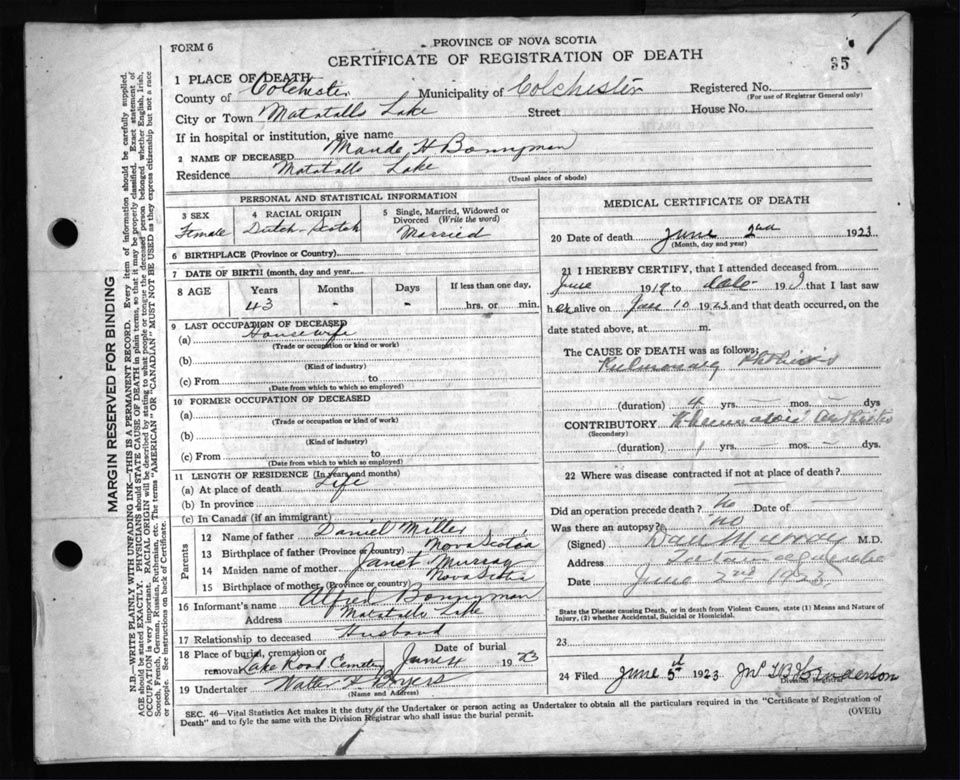 FORM 6
PROVINCE OF NOVA SCOTIA
CERTIFICATE OF REGISTRATION OF DEATH
35
1 PLACE OF DEATH
County of Colchester Municipality of Colchester Registered No.
(For use of Registrar General only)
City or Town Matatalls Lake Street House No.
If in hospital or institution, give name
2 NAME OF DECEASED Maude H Bonnyman
Residence Matatalls Lake
(Usual place of abode)
PERSONAL AND STATISTICAL INFORMATION
3 SEX 4 RACIAL ORIGIN 5 Single, Married, Widowed or Divorced (Write the word)
Female Dutch-Scotch Married
6 BIRTHPLACE (Province or Country)
7 DATE OF BIRTH (month, day and year)
8 AGE Years Months Days If less than one day,
43 - - hrs. or min.
9 LAST OCCUPATION OF DECEASED
(a) Housewife
(Trade or occupation or kind or work)
(b)
(Kind of industry)
(c) From to
(Date from which to which so employed)
10 FORMER OCCUPATION OF DECEASED
(a)
(Trade or occupation or kind of work)
(b)
(Kind of industry)
(c) From to
(Date from which to which so employed)
11 LENGTH OF RESIDENCE (In years and months)
(a) At place of death Life
(b) In province
(c) In Canada (if an immigrant)
Parents
12 Name of father Daniel Miller
13 Birthplace of father (Province or country) Nova Scotia
14 Maiden name of mother Janet Murray
15 Birthplace of mother (Province or country) Nova Scotia
16 Informant's name Alfred Bonnyman
Address Matatalls Lake
17 Relationship to deceased Husband
18 Place of burial, cremation or removal Lake Road Cemetery Date of burial June 4 1923
19 Undertaker Walter Byers
(Name and Address)
MEDICAL CERTIFICATE OF DEATH
20 Date of death June 2nd 1923
(Month, day and year)
21 I HEREBY CERTIFY, that I attended deceased from
June 1919 to date 19 that I last saw
her alive on June 10 1923 and that death occurred, on the
date stated above, at m.
The CAUSE OF DEATH was as follows:
Pulmonary Phthisis
(duration) 4 yrs. mos. dys
CONTRIBUTORY Rheumatoid Arthritis
(Secondary)
(duration) 1 yrs. mos. dys.
22 Where was disease contracted if not at place of death?
Did an operation precede death? No Date of
Was there an autopsy? No
(Signed) Dan Murray M.D.
Address
Date June 2nd 1923
State the Disease causing Death, or in death from Violent Causes, state (1) Means and Nature of Injury, (2) whether Accidental, Suicidal or Homicidal.
23
24 Filed June 5th 1923
Division Registrar
SEC. 46—Vital Statistics Act makes it the duty of the Undertaker or person acting as Undertaker to obtain all the particulars required in the "Certificate of Registration of
Death" and to fyle the same with the Division Registrar who shall issue the burial permit. (OVER)
MARGIN RESERVED FOR BINDING
N.B.—WRITE PLAINLY WITH UNFADING INK—THIS IS A PERMANENT RECORD. Every item of information should be carefully supplied.
AGE should be stated EXACTLY. PHYSICIANS should STATE CAUSE OF DEATH in plain terms, so that it may be properly classified. Exact statement of
OCCUPATION is very important. RACIAL ORIGIN will be described by stating to what people or tongue the deceased person belonged whether English, Irish,
Scotch, French, German, Russian, Ruthenian, etc. The terms "AMERICAN" OR "CANADIAN" MUST NOT BE USED as they express citizenship but not a race
or people. See instructions on back of Certificate.